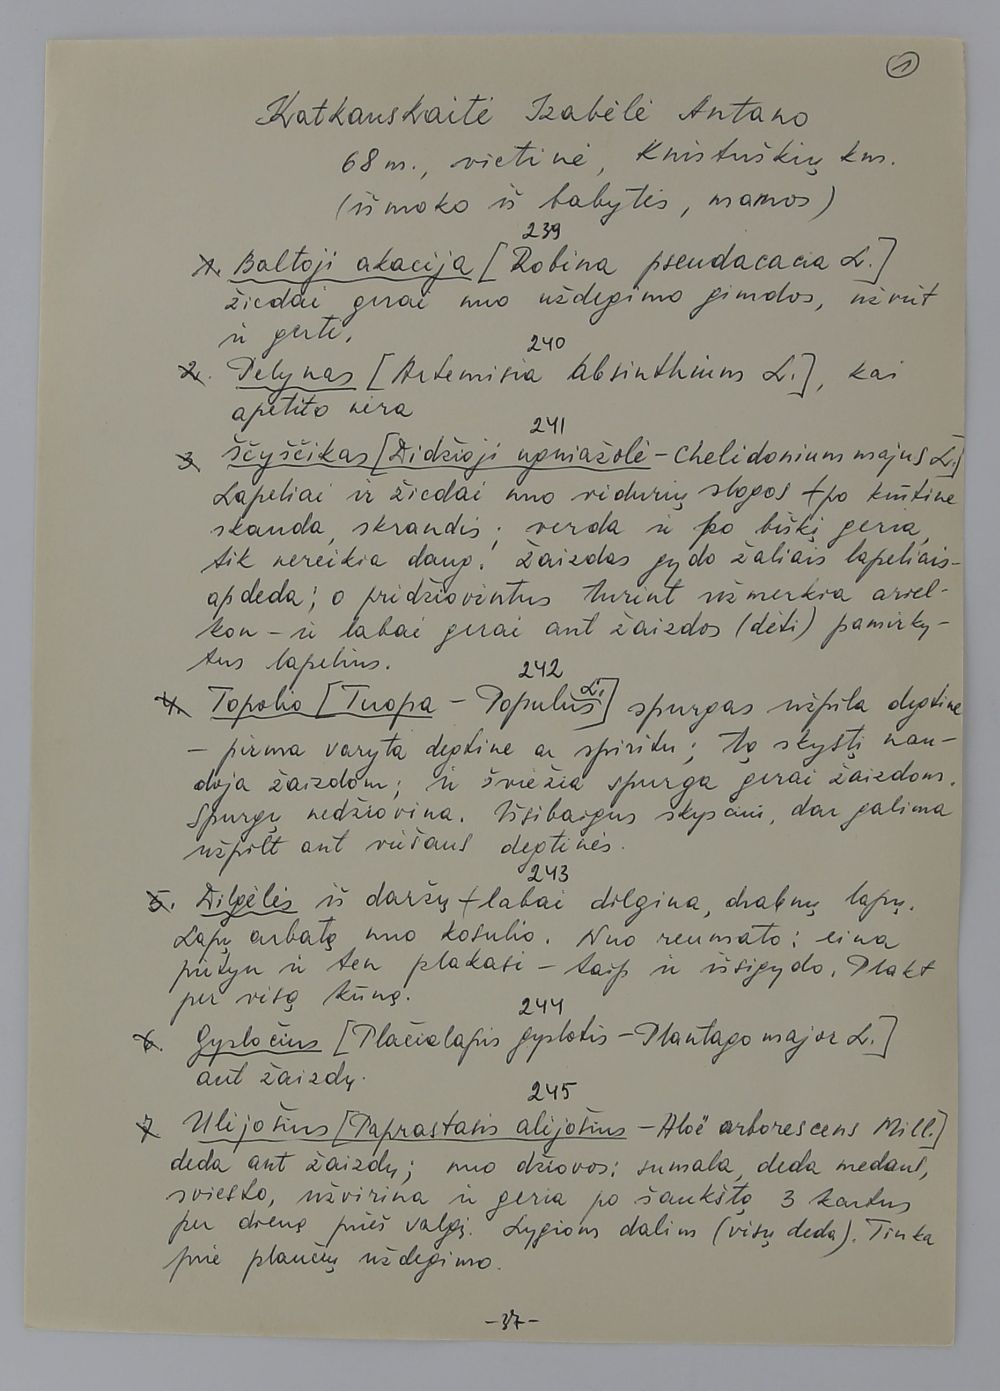 1
Katkauskaitė Izabėlė Antano
68 m., vietinė, Knistuškių km.
(išmoko iš babytės, mamos)
239
1. Baltoji akacija [Robina pseudacacia L.]
žiedai gerai nuo uždegimo gimdos, užvirt
ir gerti.
240
2. Pelynas [Artemisia absinthium L.], kai
apetito nėra
241
3. Ščyščikas [Didžioji ugniažolė - Chelidonium majus L.]
Lapeliai ir žiedai nuo vidurių slogos + po krūtine
skauda, skrandis; verda ir po biškį geria,
tik nereikia daug. Žaizdas gydo žaliais lapeliais-
apdeda; o pridžiovintus turint užmerkia ariel-
kon - ir labai gerai ant žaizdos (dėti) pamirky-
tus lapelius.
242
4. Topolio [Tuopa - Populus L.] spurgas užpila degtine
- pirma varyta degtine ar spiritu; tą skystį nau-
doja žaizdom; ir šviežia spurga gerai žaizdom.
Spurgų nedžiovina. Išsibaigus skysčiui, dar galima
užpilt ant viršaus degtinės.
243
5. Dilgėlės iš daržų + labai dilgina, drabnų lapų.
Lapų arbatą nuo kosulio. Nuo reumato: eina
pirtyn ir ten plakasi - taip ir išsigydo. Plakt
per visą kūną.
244
6. Gysločius [Plačialapis gyslotis - Plantago major L.]
ant žaizdų.
245
7. Ulijošius [Paprastasis alijošius - Aloë arborescens Mill.]
deda ant žaizdų; nuo džiovos: sumala, deda medaus,
sviesto, užvirina ir geria po šaukštą 3 kartus
per dieną prieš valgį. Lygiom dalim (visų deda). Tinka
prie plaučių uždegimo.
-37-